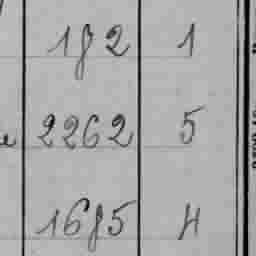 182 1
2262 5
1685 4